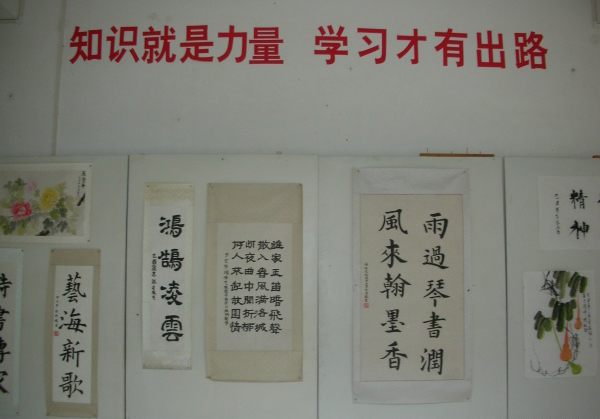 知识就是力量 学习才有出路
詩書傳家
藝海新歌
鴻鵠淩雲
誰家玉笛暗飛聲
散入春風滿洛城
此夜曲中聞折柳
何人不起故園情
雨過琴書潤
風來翰墨香
精神